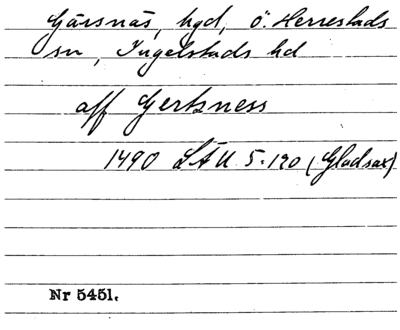 Gärsnäs, hgd, Ö. Herrestads
sn, Ingelstads hd
aff Gertzness
1490 LÄU 5.120 (Gladsax)
Nr 5451.